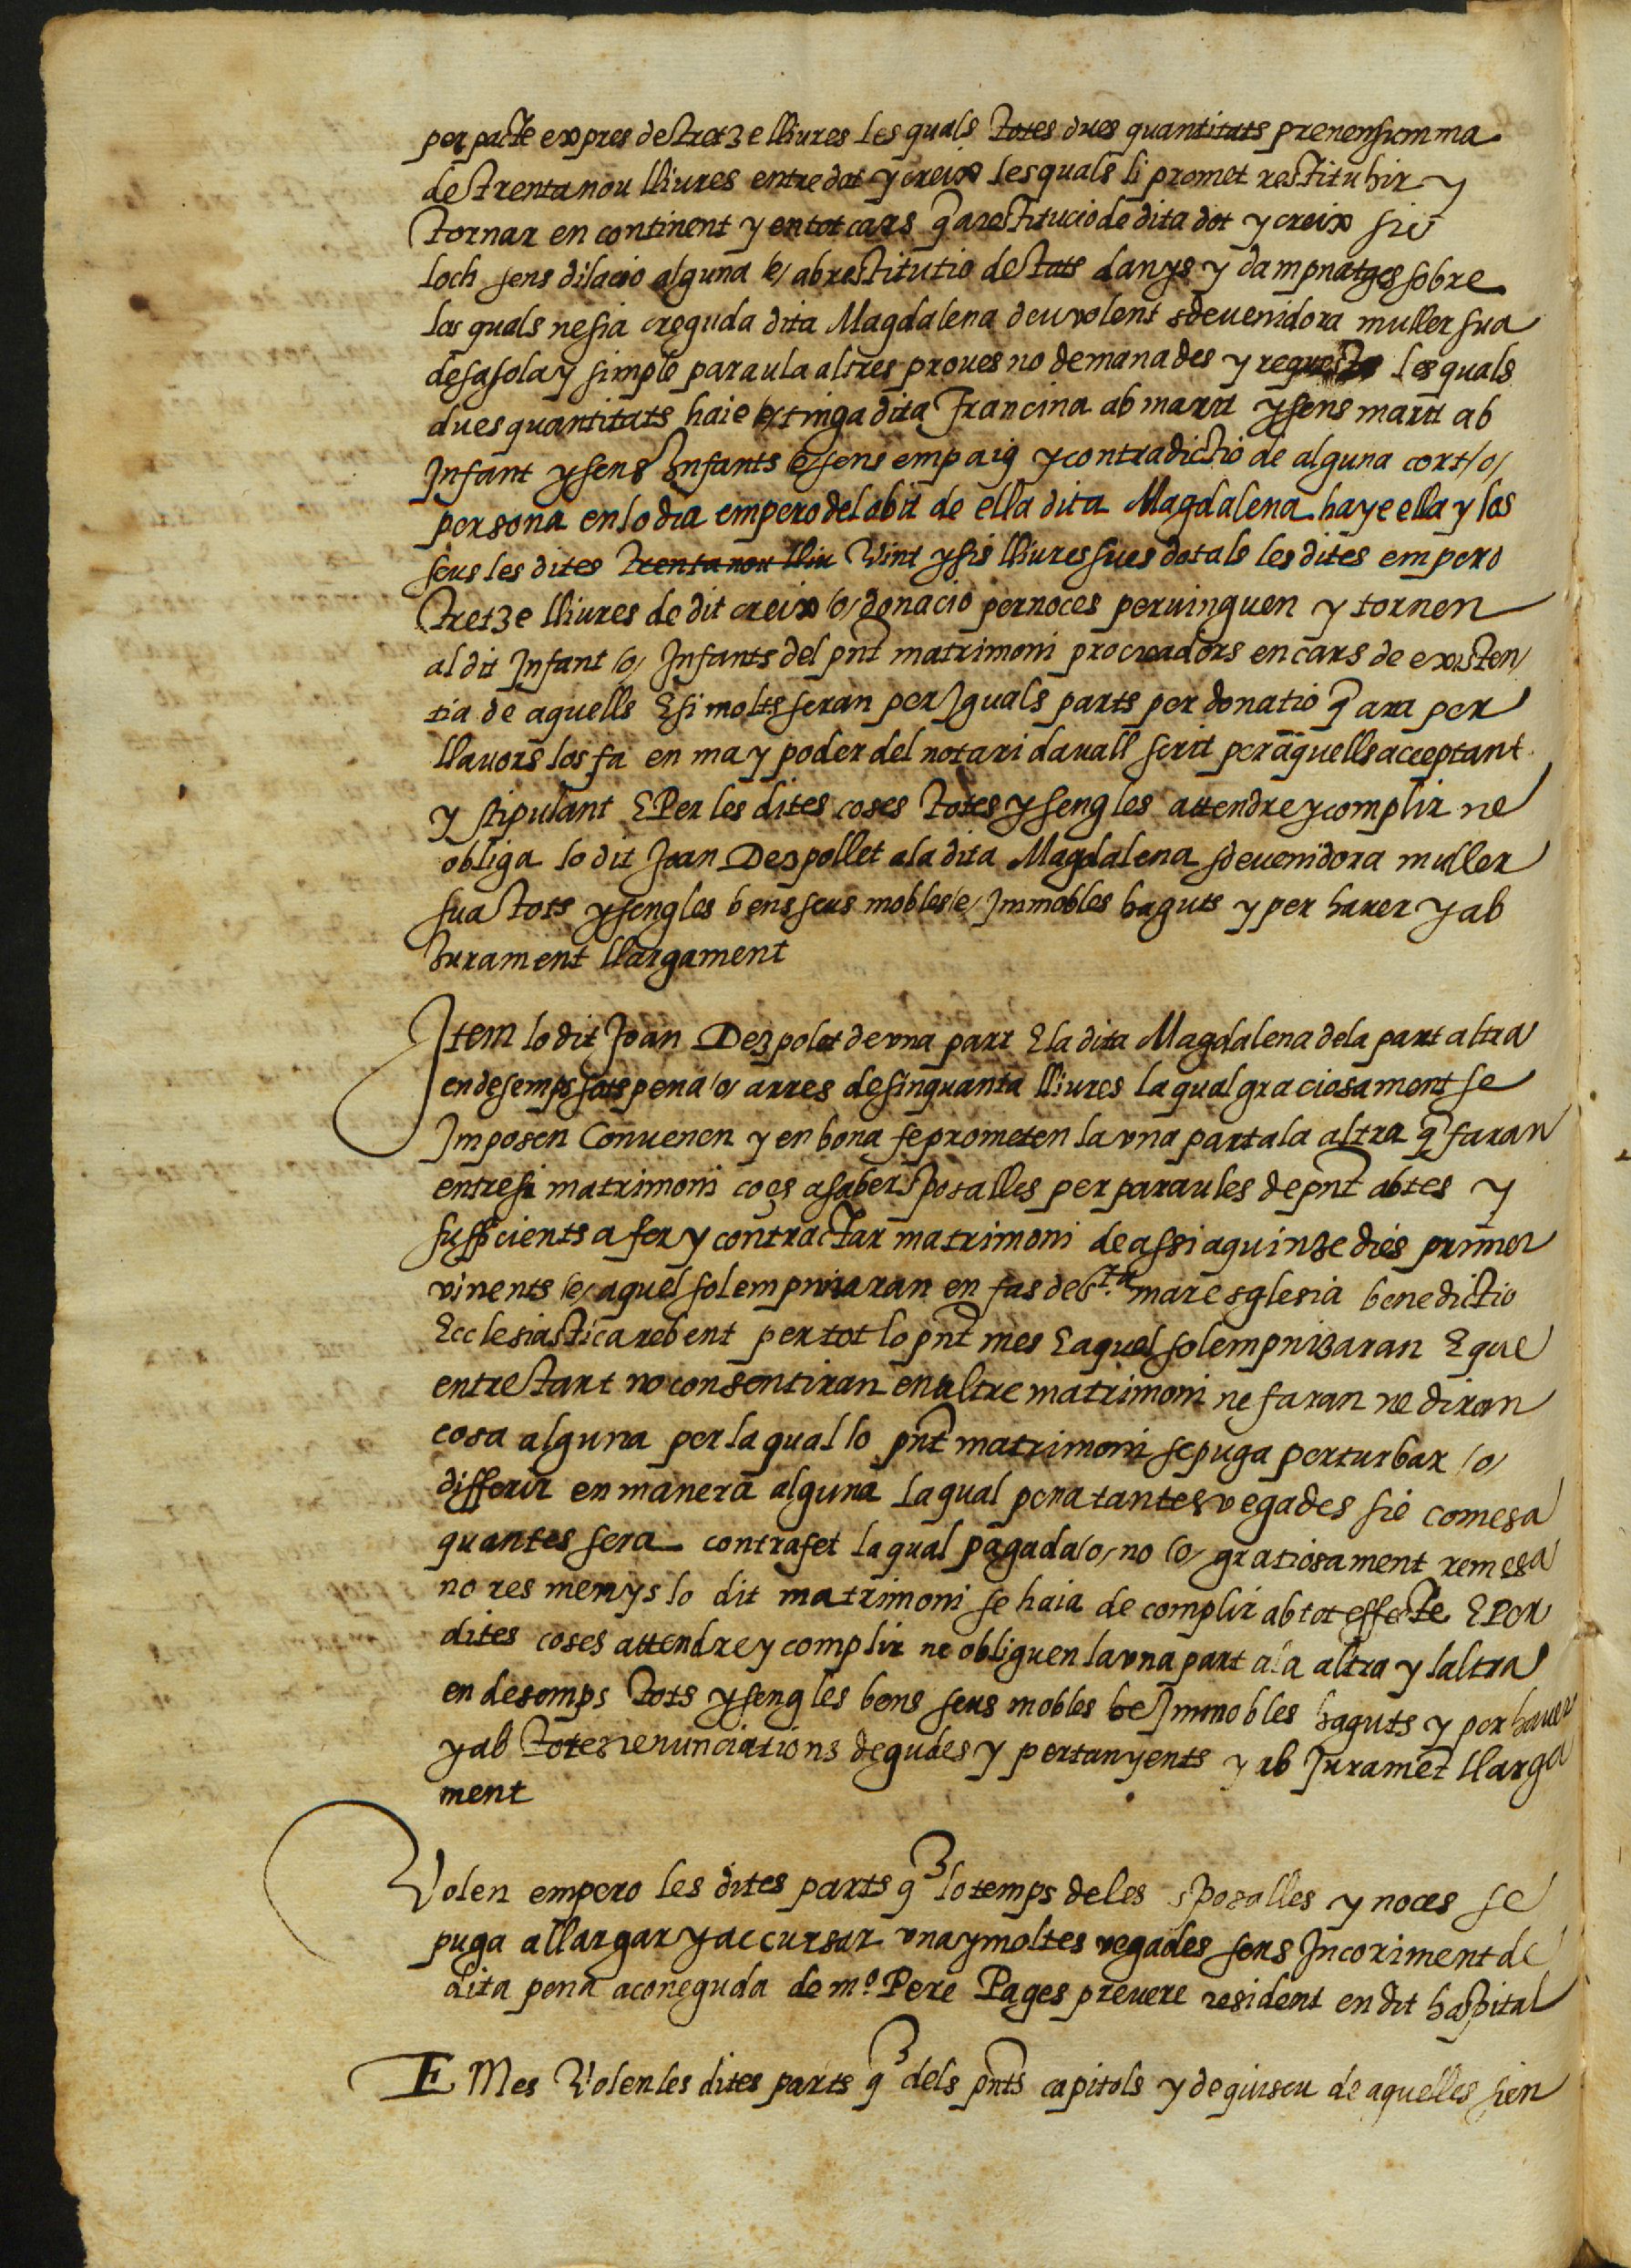 per pacte expres de tretze lliures les quals totes dues quantitats prenen summa
de trenta nou lliures entre dot y creix les quals li promet restituhir y
tornar en continent y en tot cars q̃ a restitucio de dita dot y creix sie
loch sens dilacio alguna /e/ ab restitutio de tots danys y dampnatges sobre
los quals ne sia creguda dita Magdalena deu volent sdevenidora muller sua
de sa sola y simple paraula altres proves no demanades y requestes les quals
dues quantitats haie /e/ tinga dita Francina ab marit y sens marit ab
Infant y sens Infants e sens empaig y contradictio de alguna cort /o/
persona en lo dia empero del obit de ella dita Magdalena haye ella y los
seus les dites trenta nou lliu Vint y sis lliures sues dotals les dites empero
tretze lliures de dit creix /o/ donacio per noces pervinguen y tornen
al dit Infant /o/ Infants del pñt matrimoni procreadors en cars de existen
tia de aquells E si molts seran per Iguals parts per donatio q̃ ara per
llavors los fa en ma y poder del notari davall scrit per aquells acceptant
y stipulant E Per les dites coses totes y sengles attendre y complir ne
obliga lo dit Joan Dezpollet a la dita Magdalena sdevenidora muller
sua tots y sengles bens seus mobles /e/ Immobles haguts y per haver y ab
Jurament llargament
Item lo dit Joan Dezpolet de vna part E la dita Magdalena de la part altra
en desemps sots pena /o/ arres de sinquanta lliures la qual graciosament se
Imposen Convenen y en bona fe prometen la vna part a la altra q̃ faran
entre si matrimoni ço es a saber sposalles per paraules de pñt abtes y
sufficients a fer y contractar matrimoni de assi a quinze dies primer
vinents /e/ aquel solempnizaran en fas de s.ta mare sglesia benedictio
Ecclesiastica rebent per tot lo pñt mes E aquel solempnizaran E que
entretant no consentiran en altre matrimoni ne faran ne diran
cosa alguna per la qual lo pñt matrimoni se puga perturbar /o/
differir en manera alguna la qual pena tantes vegades sie comesa
quantes sera contrafet la qual pagada /o/ no /o/ gratiosament remesa
no res menys lo dit matrimoni se haia de complir ab tot effecte E Per
dites coses attendre y complir ne obliguen la vna part a la altra y laltra
en desemps tots y sengles bens seus mobles /e/ Immobles haguts y per haver
y ab totes renunciations degudes y pertanyents y ab Juramet̃ llarga
ment
Volen empero les dites parts q̃ lo temps de les sposalles y noces se
puga allargar y accursar vna y moltes vegades sens Incoriment de
dita pena a coneguda de m.º Pere Pages prevere resident en dit hospital
E Mes Volen les dites parts q̃ dels pñts capitols y de quiscu de aquelles sien